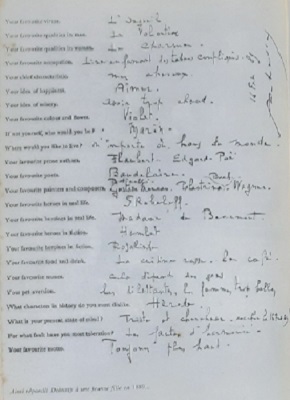 Your favorite virtue. L'orgueil
Your favorite qualities in man. La Volonté
Your favorite qualities in woman. Le charme
Your favorite occupation. Lire en fumant des tabacs compliqués.
Your chief characteristic. mon
Your idea of happiness. Aimer.
Your idea of misery. avoir trop chaud.
Your favorite colour and flower. Violet
If not yourself, who would you be?
Where would you like to live? n'importe où hors du monde.
Your favorite prose authors. Flaubert Edgard Poë
Your favorite poets. Baudelaire
Your favorite painters and composers. Botticelli Gustave Moreau, Palestrina Wagner. Bach
Your favorite heroes in real life. Skobeleff
Your favorite heroines in real life. Madame de Beaumont
Your favorite heroes in fiction. Hamlet
Your favorite heroines in fiction. Rosalinde
Your favorite food and drink. La cuisine russe. le café
Your favorite names. cela dépend des gens
Your pet aversion. Les dilettantes, les femmes trop belles
What characters in history do you most dislike. Hérode
What is your present state of mind? Triste et chercheuse
For what fault have you most toleration? Les fautes d'harmonie
Your favorite motto. Toujours plus haut.
Ainsi répondit Debussy à une jeune fille en